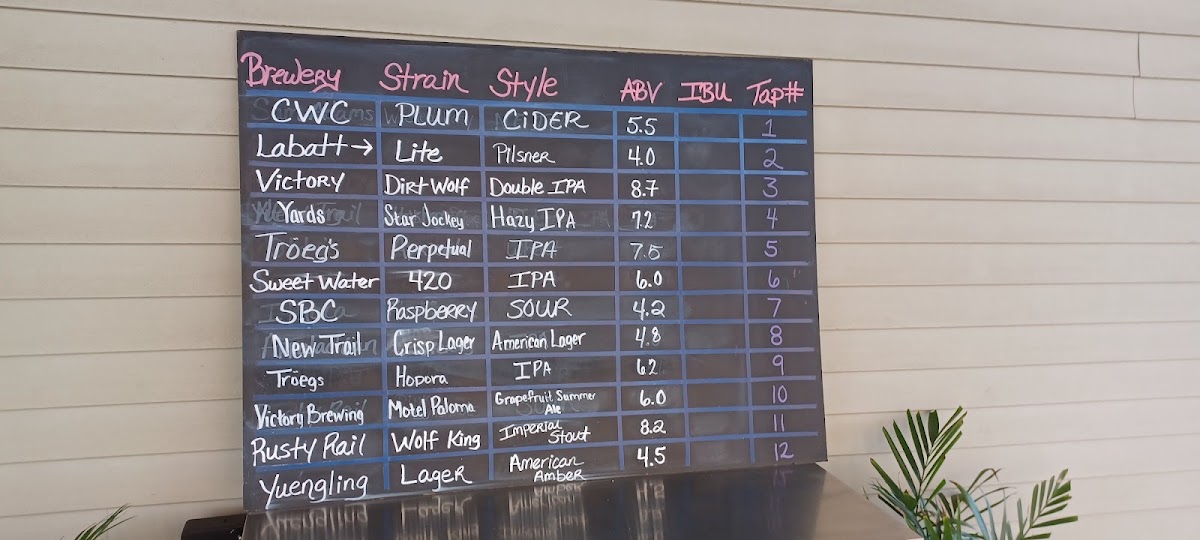 Brewery Strain Style ABV IBU Tap#
CWC PLUM CiDER 5.5 1
Labatt → Lite Pilsner 4.0 2
Victory Dirt Wolf Double IPA 8.7 3
Yards Star Jockey Hazy IPA 7.2 4
Tröeg's Perpetual IPA 7.5 5
Sweet Water 420 IPA 6.0 6
SBC Raspberry SOUR 4.2 7
New Trail Crisp Lager American Lager 4.8 8
Tröegs Hopora IPA 6.2 9
Victory Brewing Motel Paloma Grapefruit Summer Ale 6.0 10
Rusty Rail Wolf King Imperial Stout 8.2 11
Yuengling Lager American Amber 4.5 12